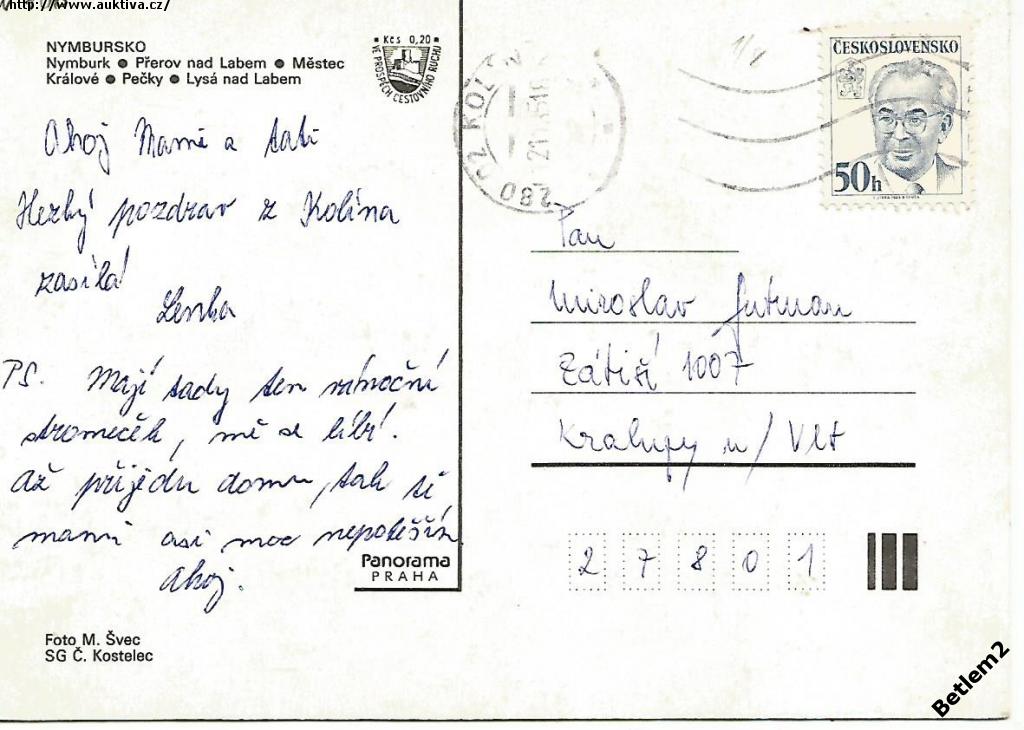 http://www.auktiva.cz/
NYMBURSKO
Nymburk ● Přerov nad Labem ● Městec
Králové ● Pečky ● Lysá nad Labem
Kčs 0,20
VE PROSPĚCH CESTOVNÍHO RUCHU
Ahoj Mami a tati
Hezký pozdrav z Kolína
zasílá
Lenka
PS. Mají tady ten vánoční
stromeček, mě se líbí.
Až přijedu domu, tak tě
mami asi moc nepotěším
Ahoj.
Panorama
PRAHA
Foto M. Švec
SG Č. Kostelec
280 02 KOLÍN
1/1
ČESKOSLOVENSKO
50h
Pan
Miroslav Gutman
Zátiší 1007
Kralupy n/Vlt
27801
Betlem2